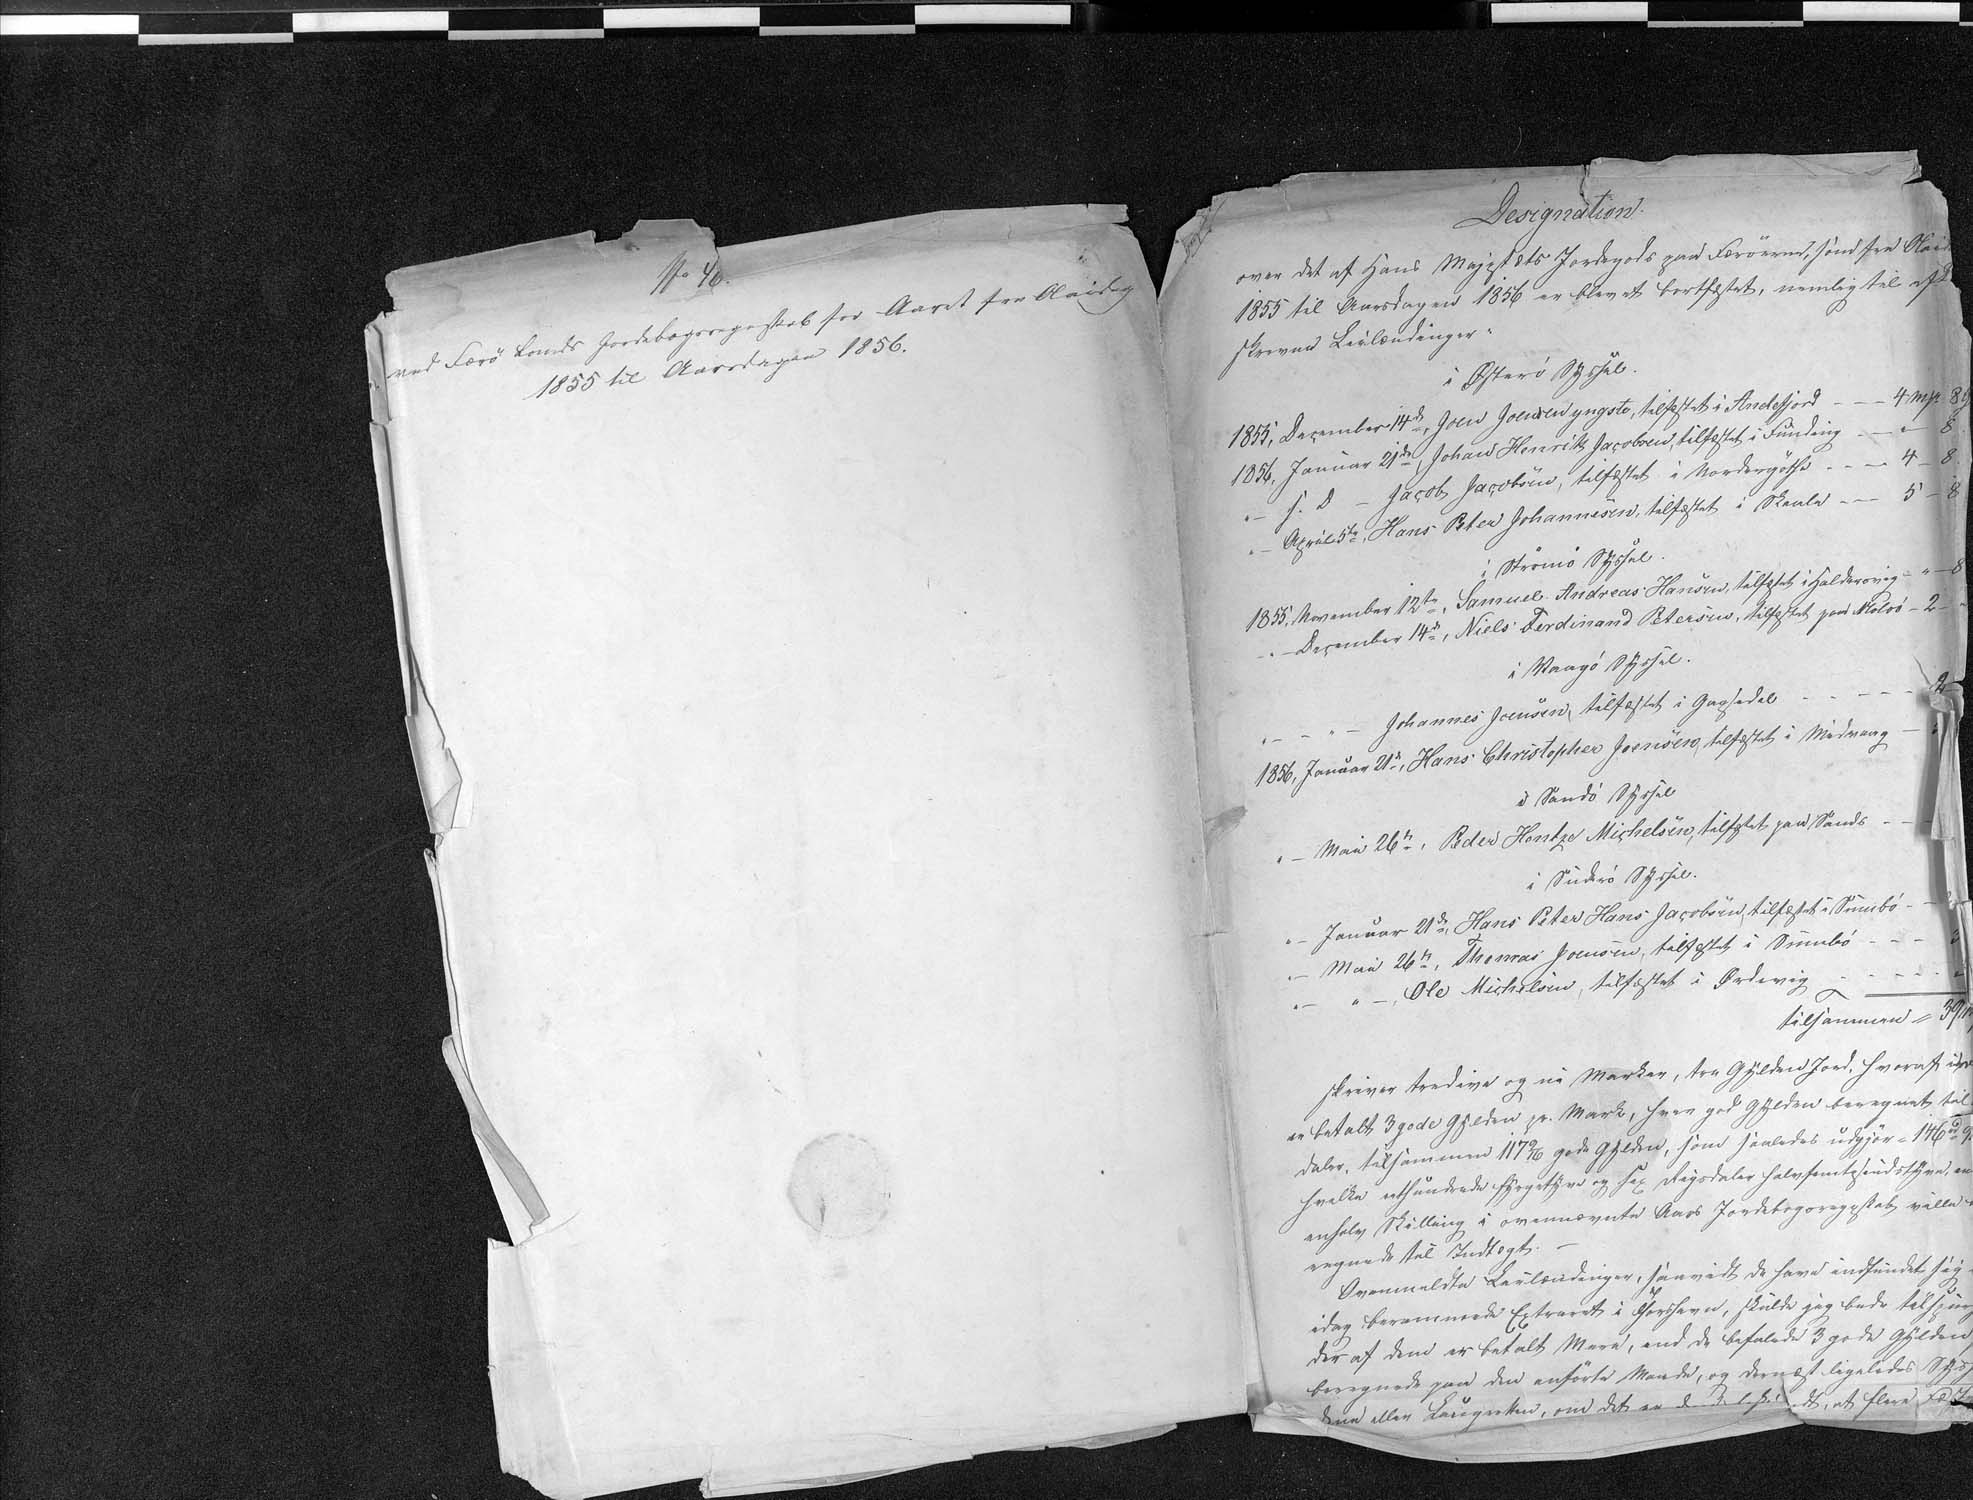 No 46.
ved Færö Lands Jordebogsregnskab for Aaret fra Olaidag
1855 til Aarsdagen 1856.
Designation.
over det af Hans Majestæts Jordegods paa Færöerne, som fra Olai
1855 til Aarsdagen 1856 er blevet bortfæstet, nemlig til
skrevne Leilændinger:
i Østerö Syssel.
1855, December 14de, Joen Joensen yngste, tilfæstet i Andefjord - - - 4 Mk 8
1856, Januar 21de, Johan Henrik Jacobsen, tilfæstet i Funding - - " - 8
" - s. D - Jacob Jacobsen, tilfæstet i Nordergöthe - - - 4 - 8
" - April 5te, Hans Peter Johannesen, tilfæstet i Skaale - - - 5 - 8
i Strömö Syssel.
1855, November 12te, Samuel Andreas Hansen, tilfæstet i Haldersvig - " - 8
" - December 14de, Niels Ferdinand Petersen, tilfæstet paa Nolsö - 2 -
i Vaagö Syssel.
" - - " - Johannes Joensen, tilfæstet i Gaasedal - - - - - 2
1856, Januar 21de, Hans Christopher Joensen, tilfæstet i Midvaag -
i Sandö Syssel
" - Mai 26te, Peder Hentze Michelsen, tilfæstet paa Sands - -
i Suderö Syssel.
" - Januar 21de, Hans Peter Hans Jacobsen, tilfæstet i Sumbö - -
" - Mai 26te, Thomas Joensen, tilfæstet i Sumbö - - - 3
" - " -, Ole Michelsen, tilfæstet i Ördevig - - - - -
tilsammen = 39
skriver tredive og ni Marker, tre Gylden Jord, hvoraf
er betalt 3 gode Gylden pr. Mark, hver god Gylden beregnet til
daler, tilsammen 117 gode Gylden, som saaledes udgjör = 146 rd
hvilke eethundrede fyrgetyve og sex Rigsdaler halvfemtesindstyve,
enhalv Skilling i ovennævnte Aars Jordebogsregnskab ville
regnede til Indtægt. -
Ovenmeldte Leilændinger, saavidt de have indfundet sig
idag berammede Extraret i Thorshavn, skulde jeg bede tilspurg
der af dem er betalt Mere, end de befalede 3 gode Gylden,
beregnede paa den anförte Maade, og dernæst ligeledes
dene eller Laugretten, om det er at flere